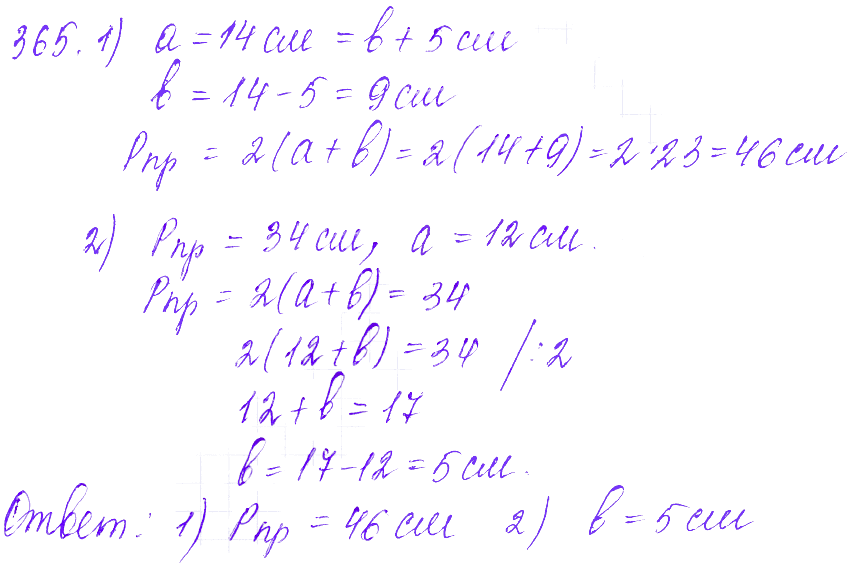 365. 1) a = 14 см = в + 5 см
в = 14 - 5 = 9 см
Pпр = 2(a + в) = 2(14+9) = 2·23 = 46 см
2) Pпр = 34 см, a = 12 см.
Pпр = 2(a+в) = 34
2(12+в) = 34 /:2
12 + в = 17
в = 17-12 = 5 см.
Ответ: 1) Pпр = 46 см 2) в = 5 см